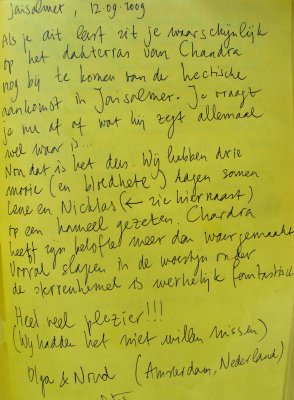 Jaisalmer, 12-09-2009
Als je dit leest zit je waarschijnlijk
op het dakterras van Chandra
nog bij te komen van de hectische
aankomst in Jaisalmer. Je vraagt
je nu af of wat hij zegt allemaal
wel waar is...
Nou dat is het dus. Wij hebben drie
mooie (en bloedhete) dagen samen
Lene en Nichlas (← zie hiernaast)
op een kameel gezeten. Chandra
heeft zijn belofte meer dan waargemaakt
Vooral slapen in de woestijn onder
de sterrenhemel is werkelijk fantastisch
Heel veel plezier!!!
(Wij hadden het niet willen missen)
Olga & Noud (Amsterdam, Nederland)